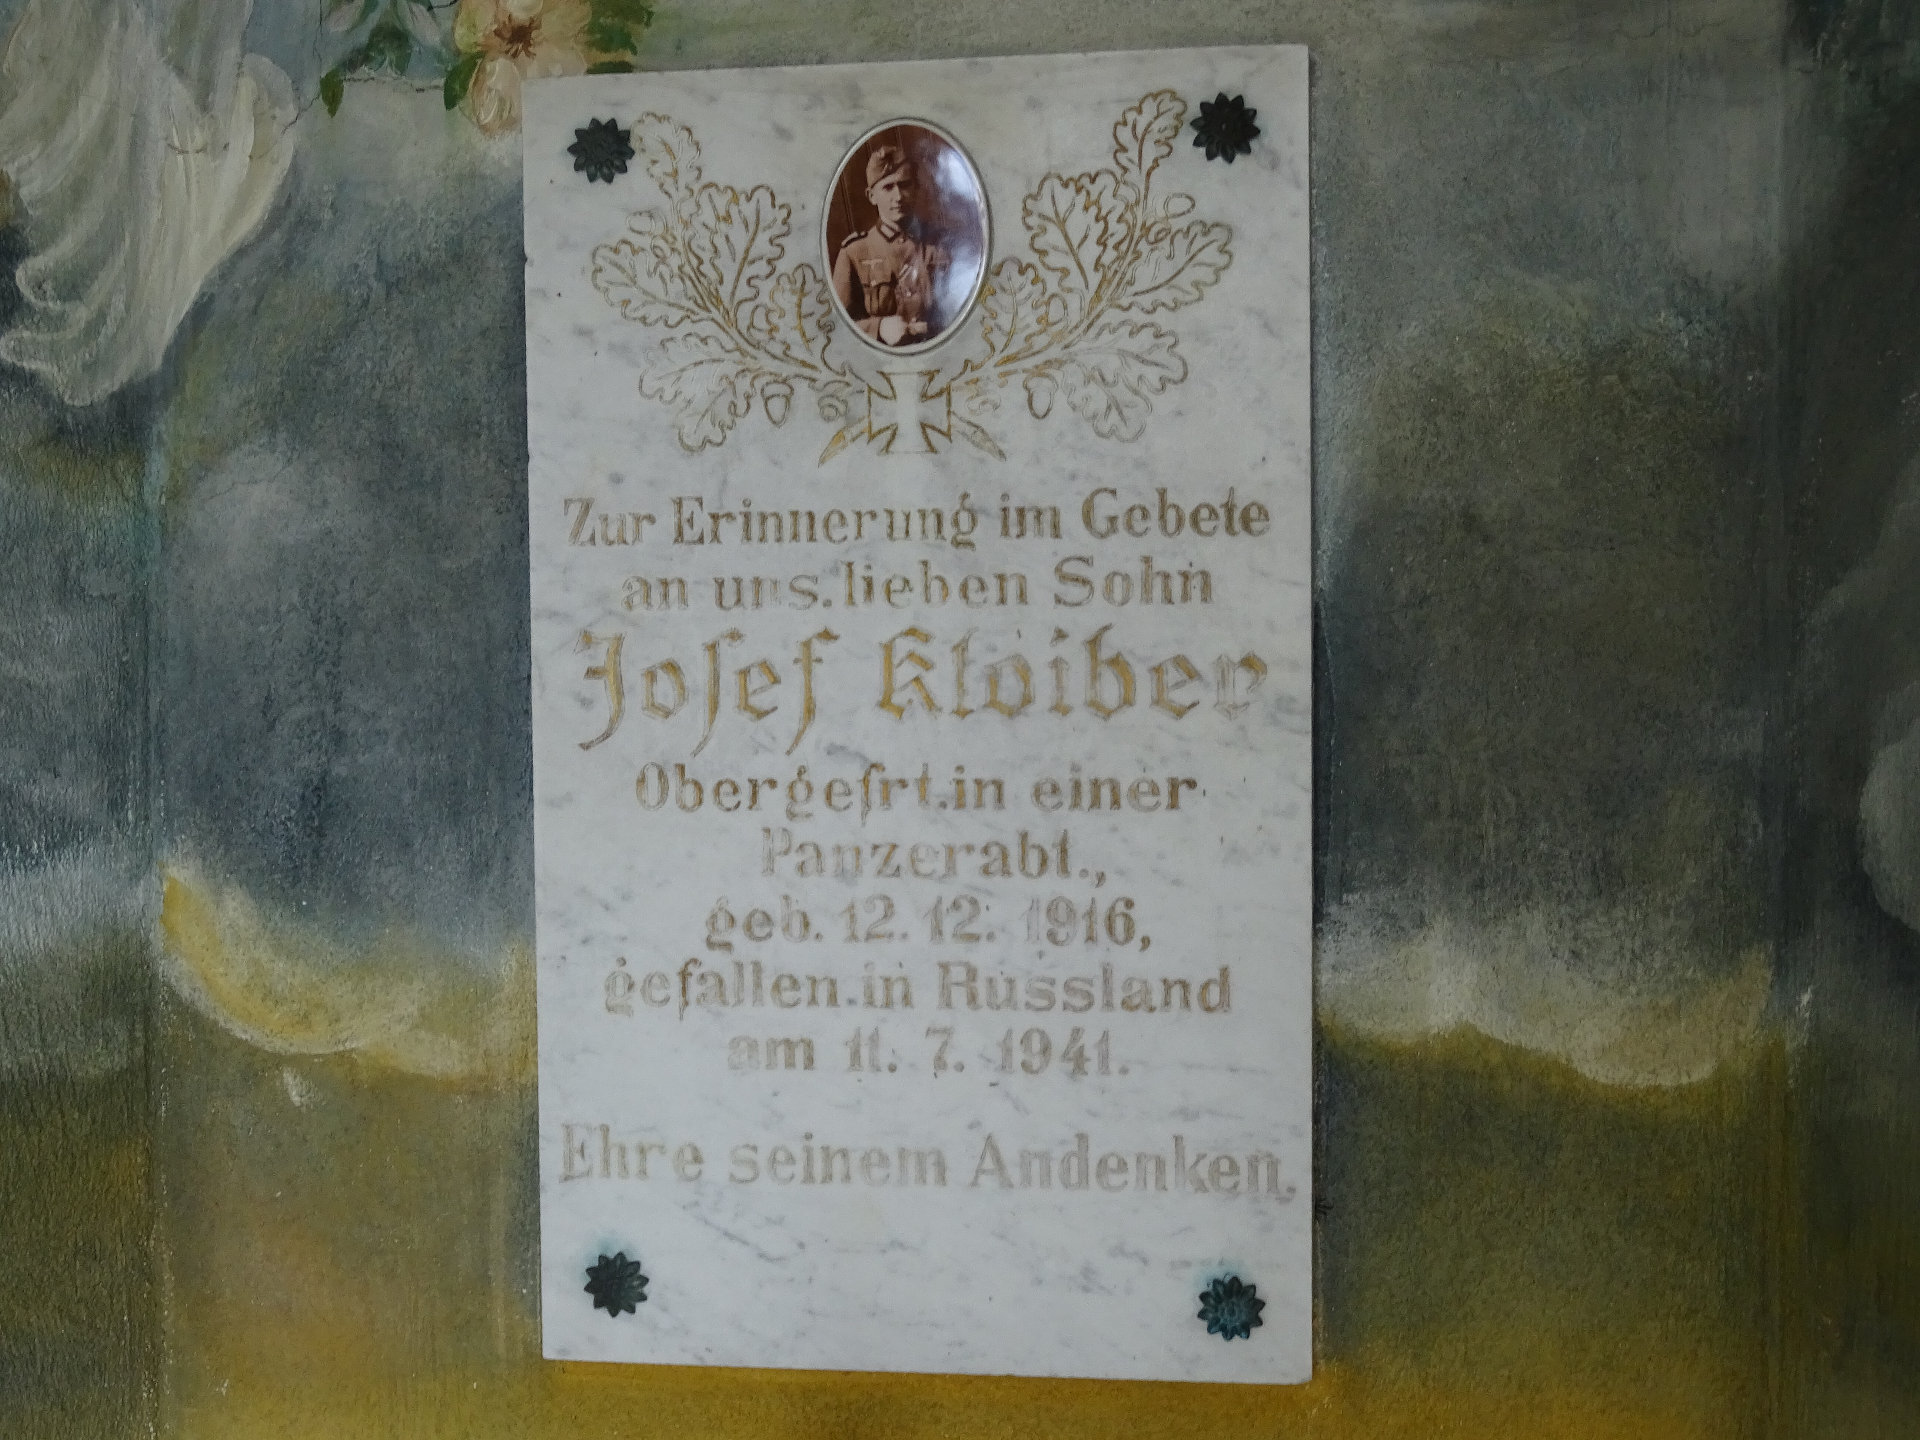 Zur Erinnerung im Gebete
an uns. lieben Sohn
Josef Kloiber
Obergefrt. in einer
Panzerabt.,
geb. 12. 12. 1916,
gefallen in Russland
am 11. 7. 1941.
Ehre seinem Andenken.